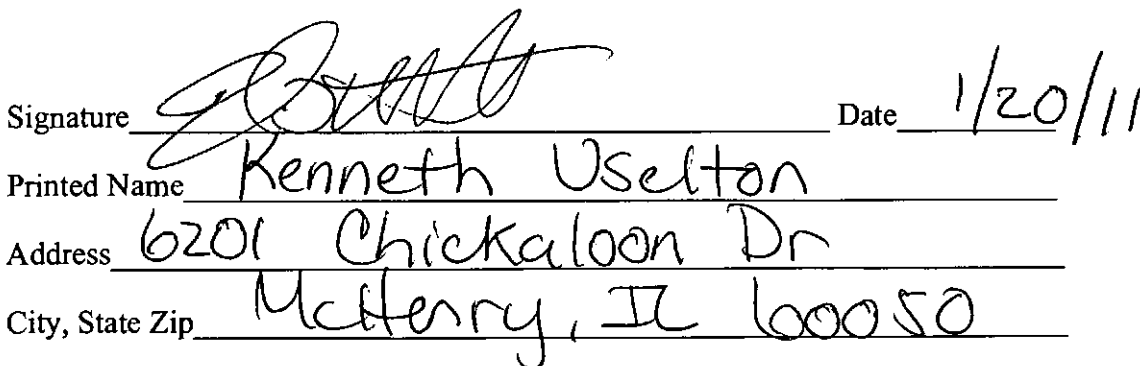 Signature Date 1/20/11
Printed Name Kenneth Uselton
Address 6201 Chickaloon Dr
City, State Zip McHenry, IL 60050